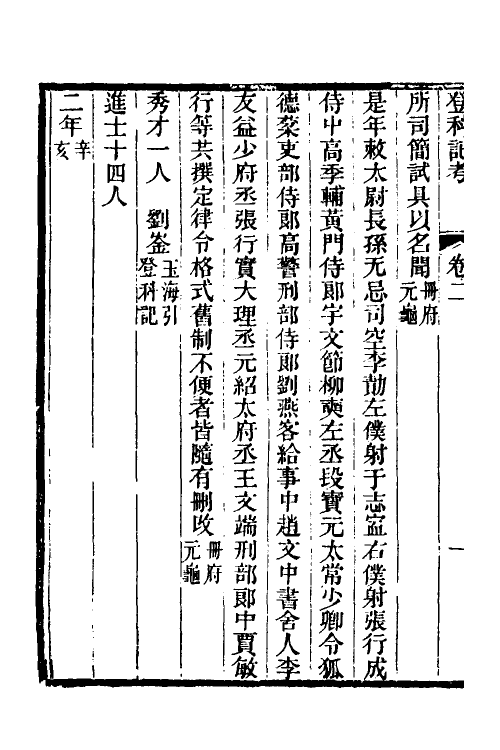 登科記考　卷二　一
所司簡試具以名聞冊府元龜
是年敕太尉長孫无忌司空李勣左僕射于志寍右僕射張行成
侍中高季輔黃門侍郎宇文節柳奭左丞段寶元太常少卿令狐
德棻吏部侍郎高謷刑部侍郎劉燕客給事中趙文中書舍人李
友益少府丞張行實大理丞元紹太府丞王文端刑部郎中賈敏
行等共撰定律令格式舊制不便者皆隨有刪改冊府元龜
秀才一人　劉崟玉海引登科記
進士十四人
二年辛亥